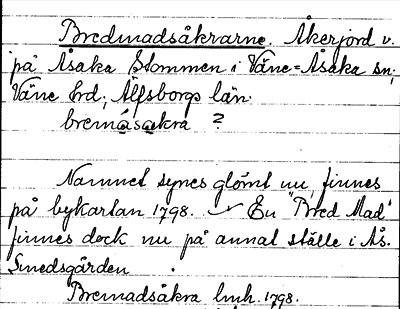 Bredmadsåkrarne. Åkerjord v.
på Åsaka Stommen i Väne-Åsaka sn,
Väne hd, Älfsborgs län.
bremåsakra ?
Namnet synes glömt nu, finnes
på bykartan 1798. En "Bred Mad"
finnes dock nu på annat ställe i Ås.
Smedsgården.
Bremadsåkra lmh. 1798.